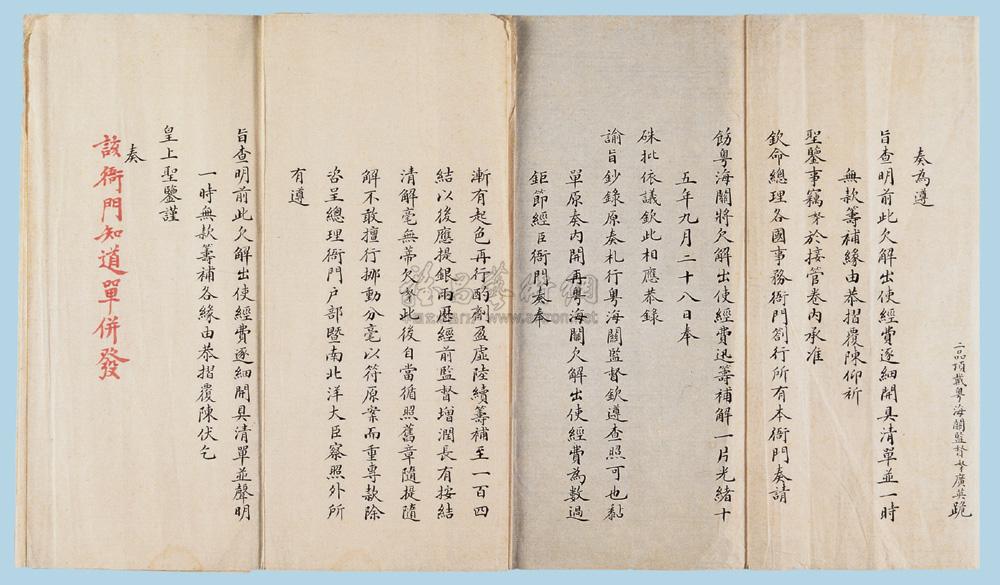 二品頂戴粵海關監督奴才廣英跪
奏為遵
旨查明前此欠解出使經費逐細開具清單並一時
無款籌補緣由恭摺覆陳仰祈
聖鑒事竊奴才於接管卷內承准
欽命總理各國事務衙門劄行所有本衙門奏請
飭粵海關將欠解出使經費迅籌補解一片光緒十
五年九月二十八日奉
硃批依議欽此相應恭錄
諭旨鈔錄原奏札行粵海關監督欽遵查照可也黏
單原奏內開再粵海關欠解出使經費為數過
鉅節經臣衙門奏奉
漸有起色再行酌劑盈虛陸續籌補至一百四
結以後應提銀兩歷經前監督增潤長有按結
清解毫無蒂欠奴才此後自當循照舊章隨提隨
解不敢擅行挪動分毫以符原案而重專款除
咨呈總理衙門戶部暨南北洋大臣察照外所
有遵
旨查明前此欠解出使經費逐細開具清單並聲明
一時無款籌補各緣由恭摺覆陳伏乞
皇上聖鑒謹
奏
該衙門知道單併發